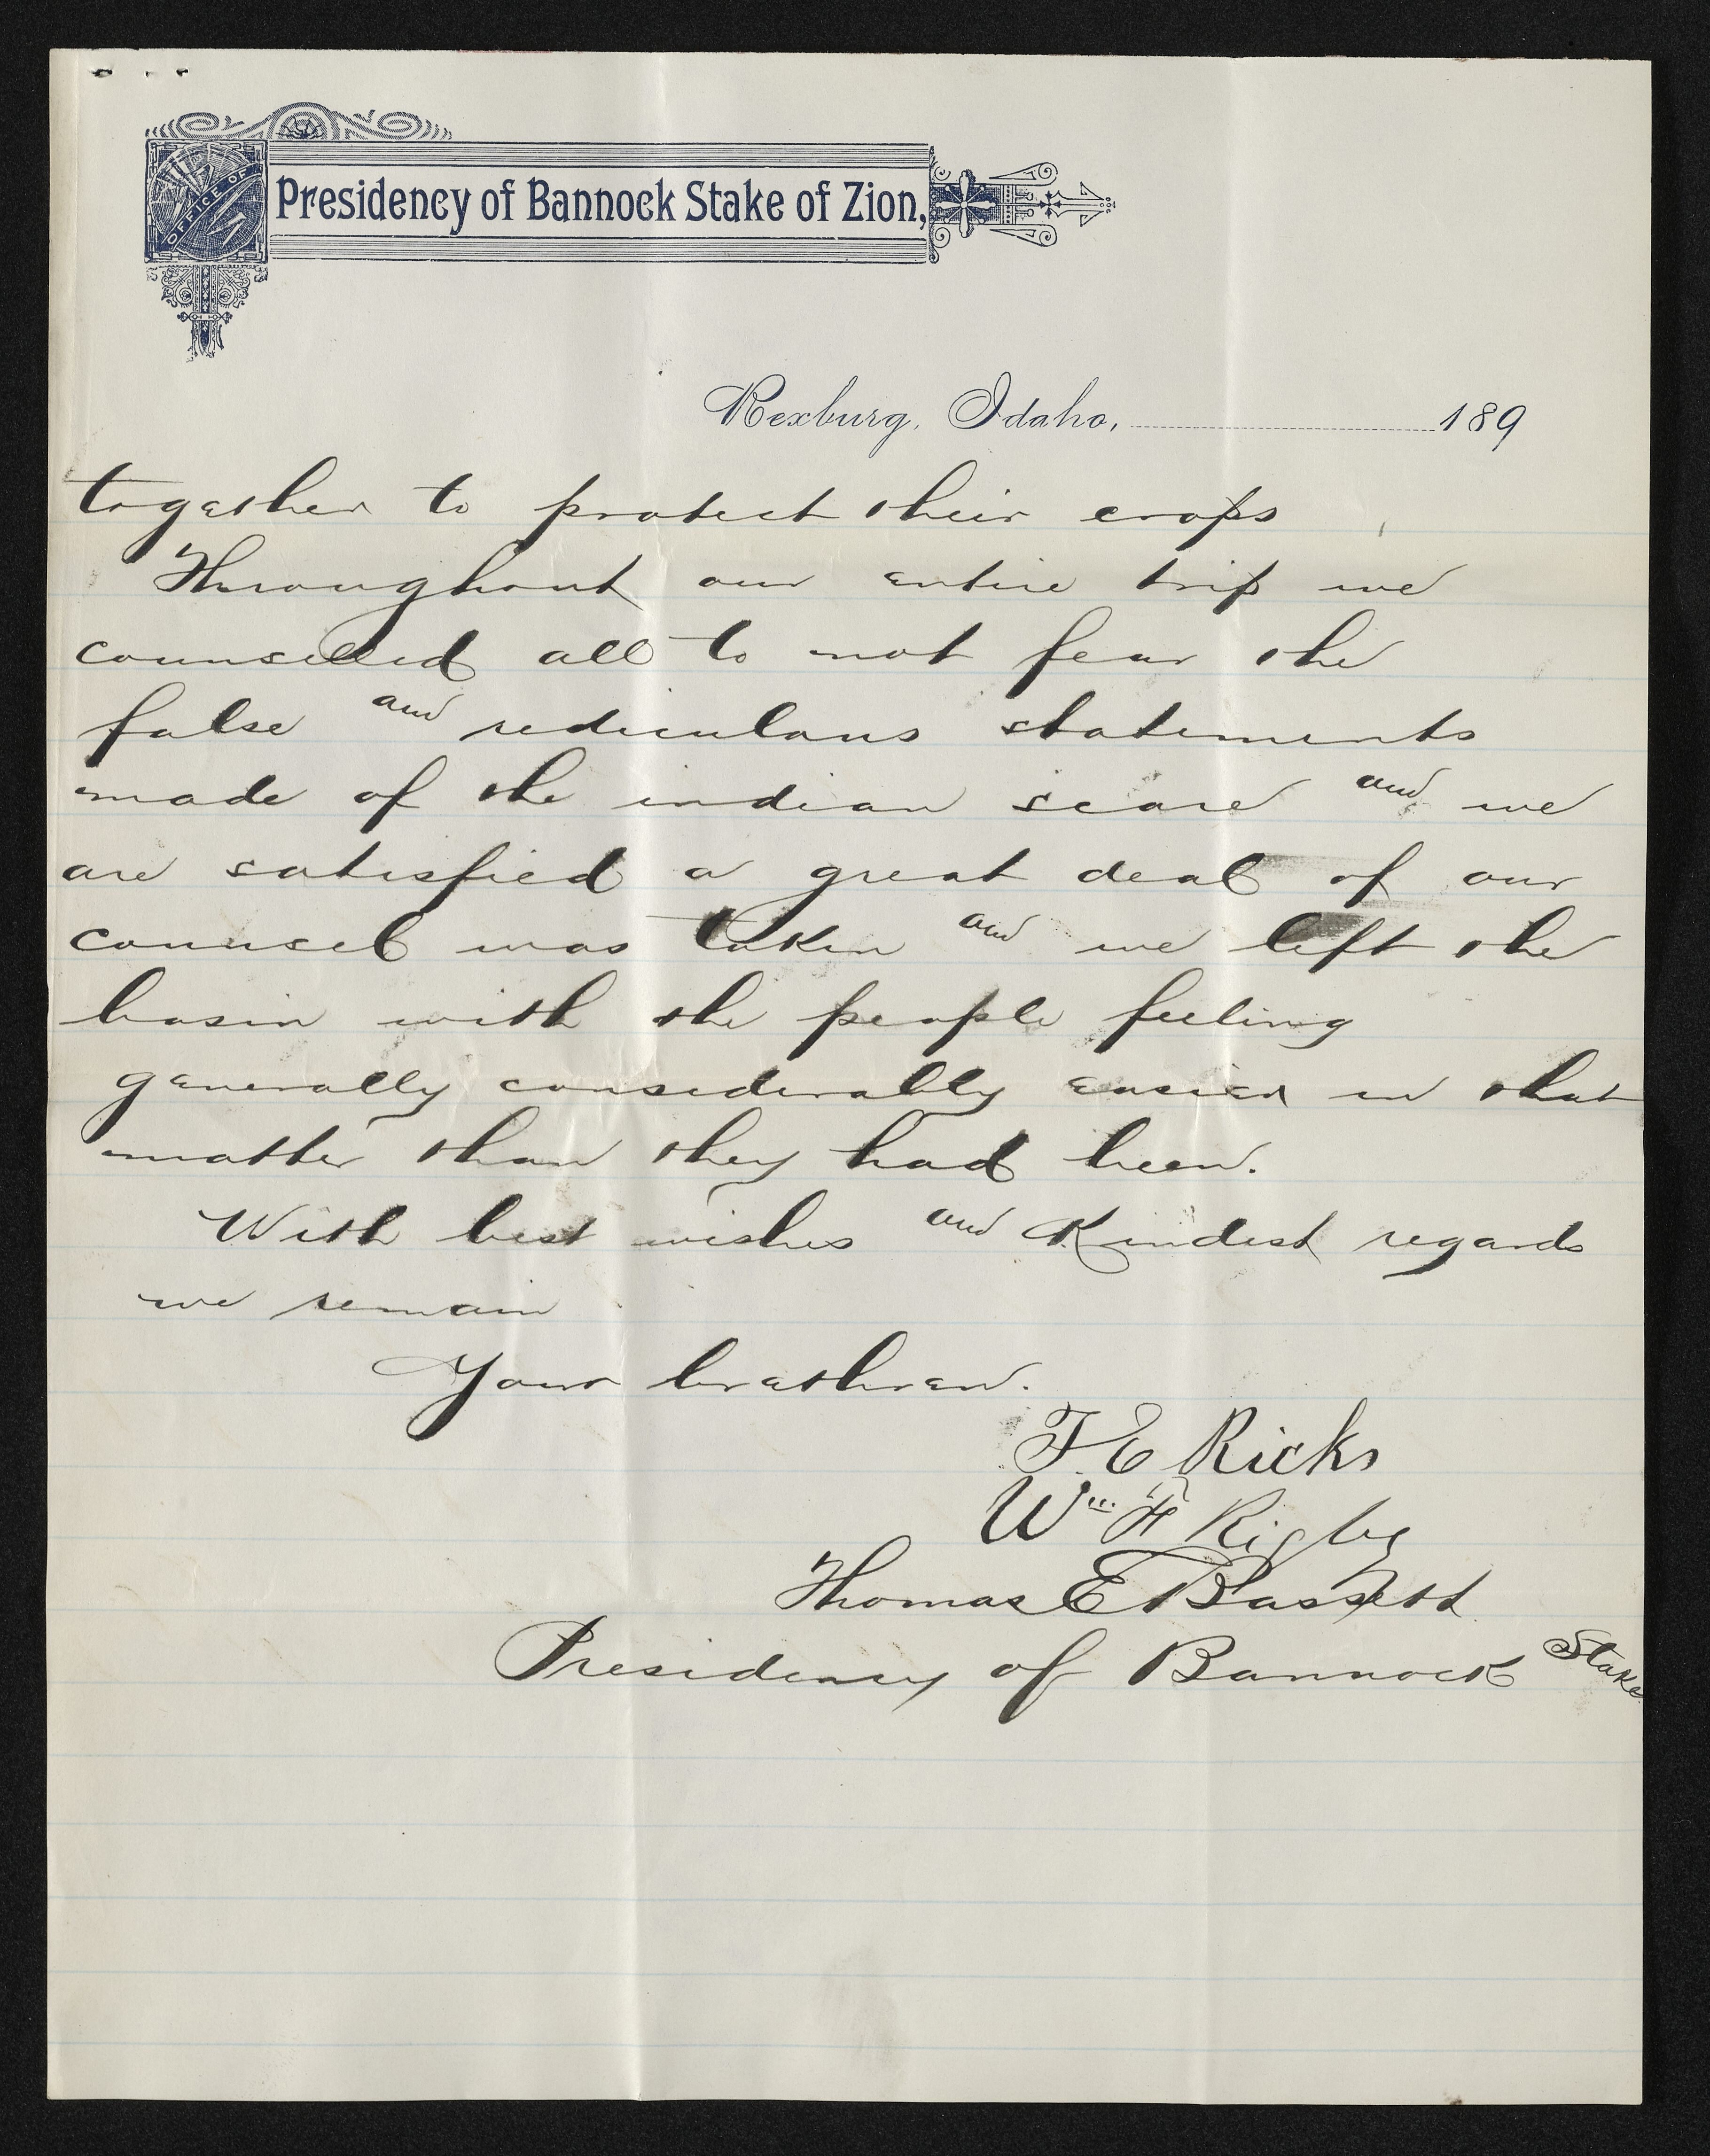 OFFICE OF
Presidency of Bannock Stake of Zion,
Rexburg, Idaho, 189
together to protect their crops
Throughout our entire trip we
counselled all to not fear the
false and rediculous statements
made of the indian scare and we
are satisfied a great deal of our
counsel was taken and we left the
basin with the people feeling
generally considerably easier in that
matter than they had been.
With best wishes and Kindest regards
we remain
Your brethren.
T. E Ricks
Wm F Rigby
Thomas E Bassett
Presidency of Bannock Stake